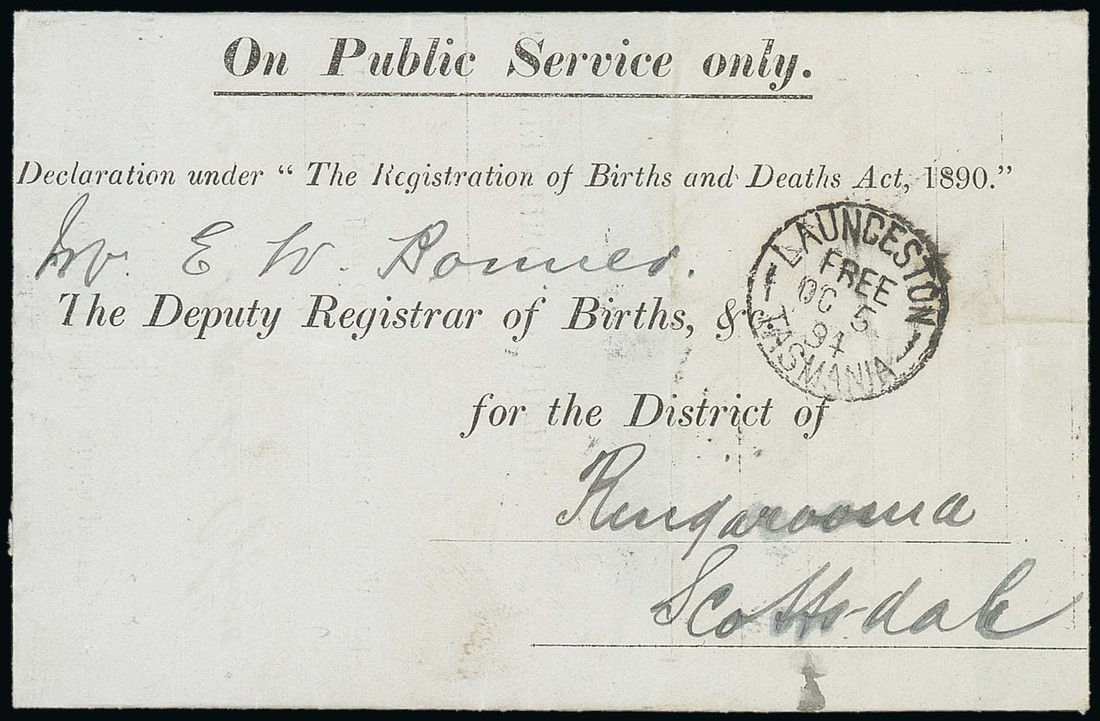 On Public Service only.
Declaration under “ The Registration of Births and Deaths Act, 1890.”
Mr. E W. Bonner.
The Deputy Registrar of Births, &c.
for the District of
Ringarooma
Scottsdale
LAUNCESTON
FREE
OC 5
94
TASMANIA